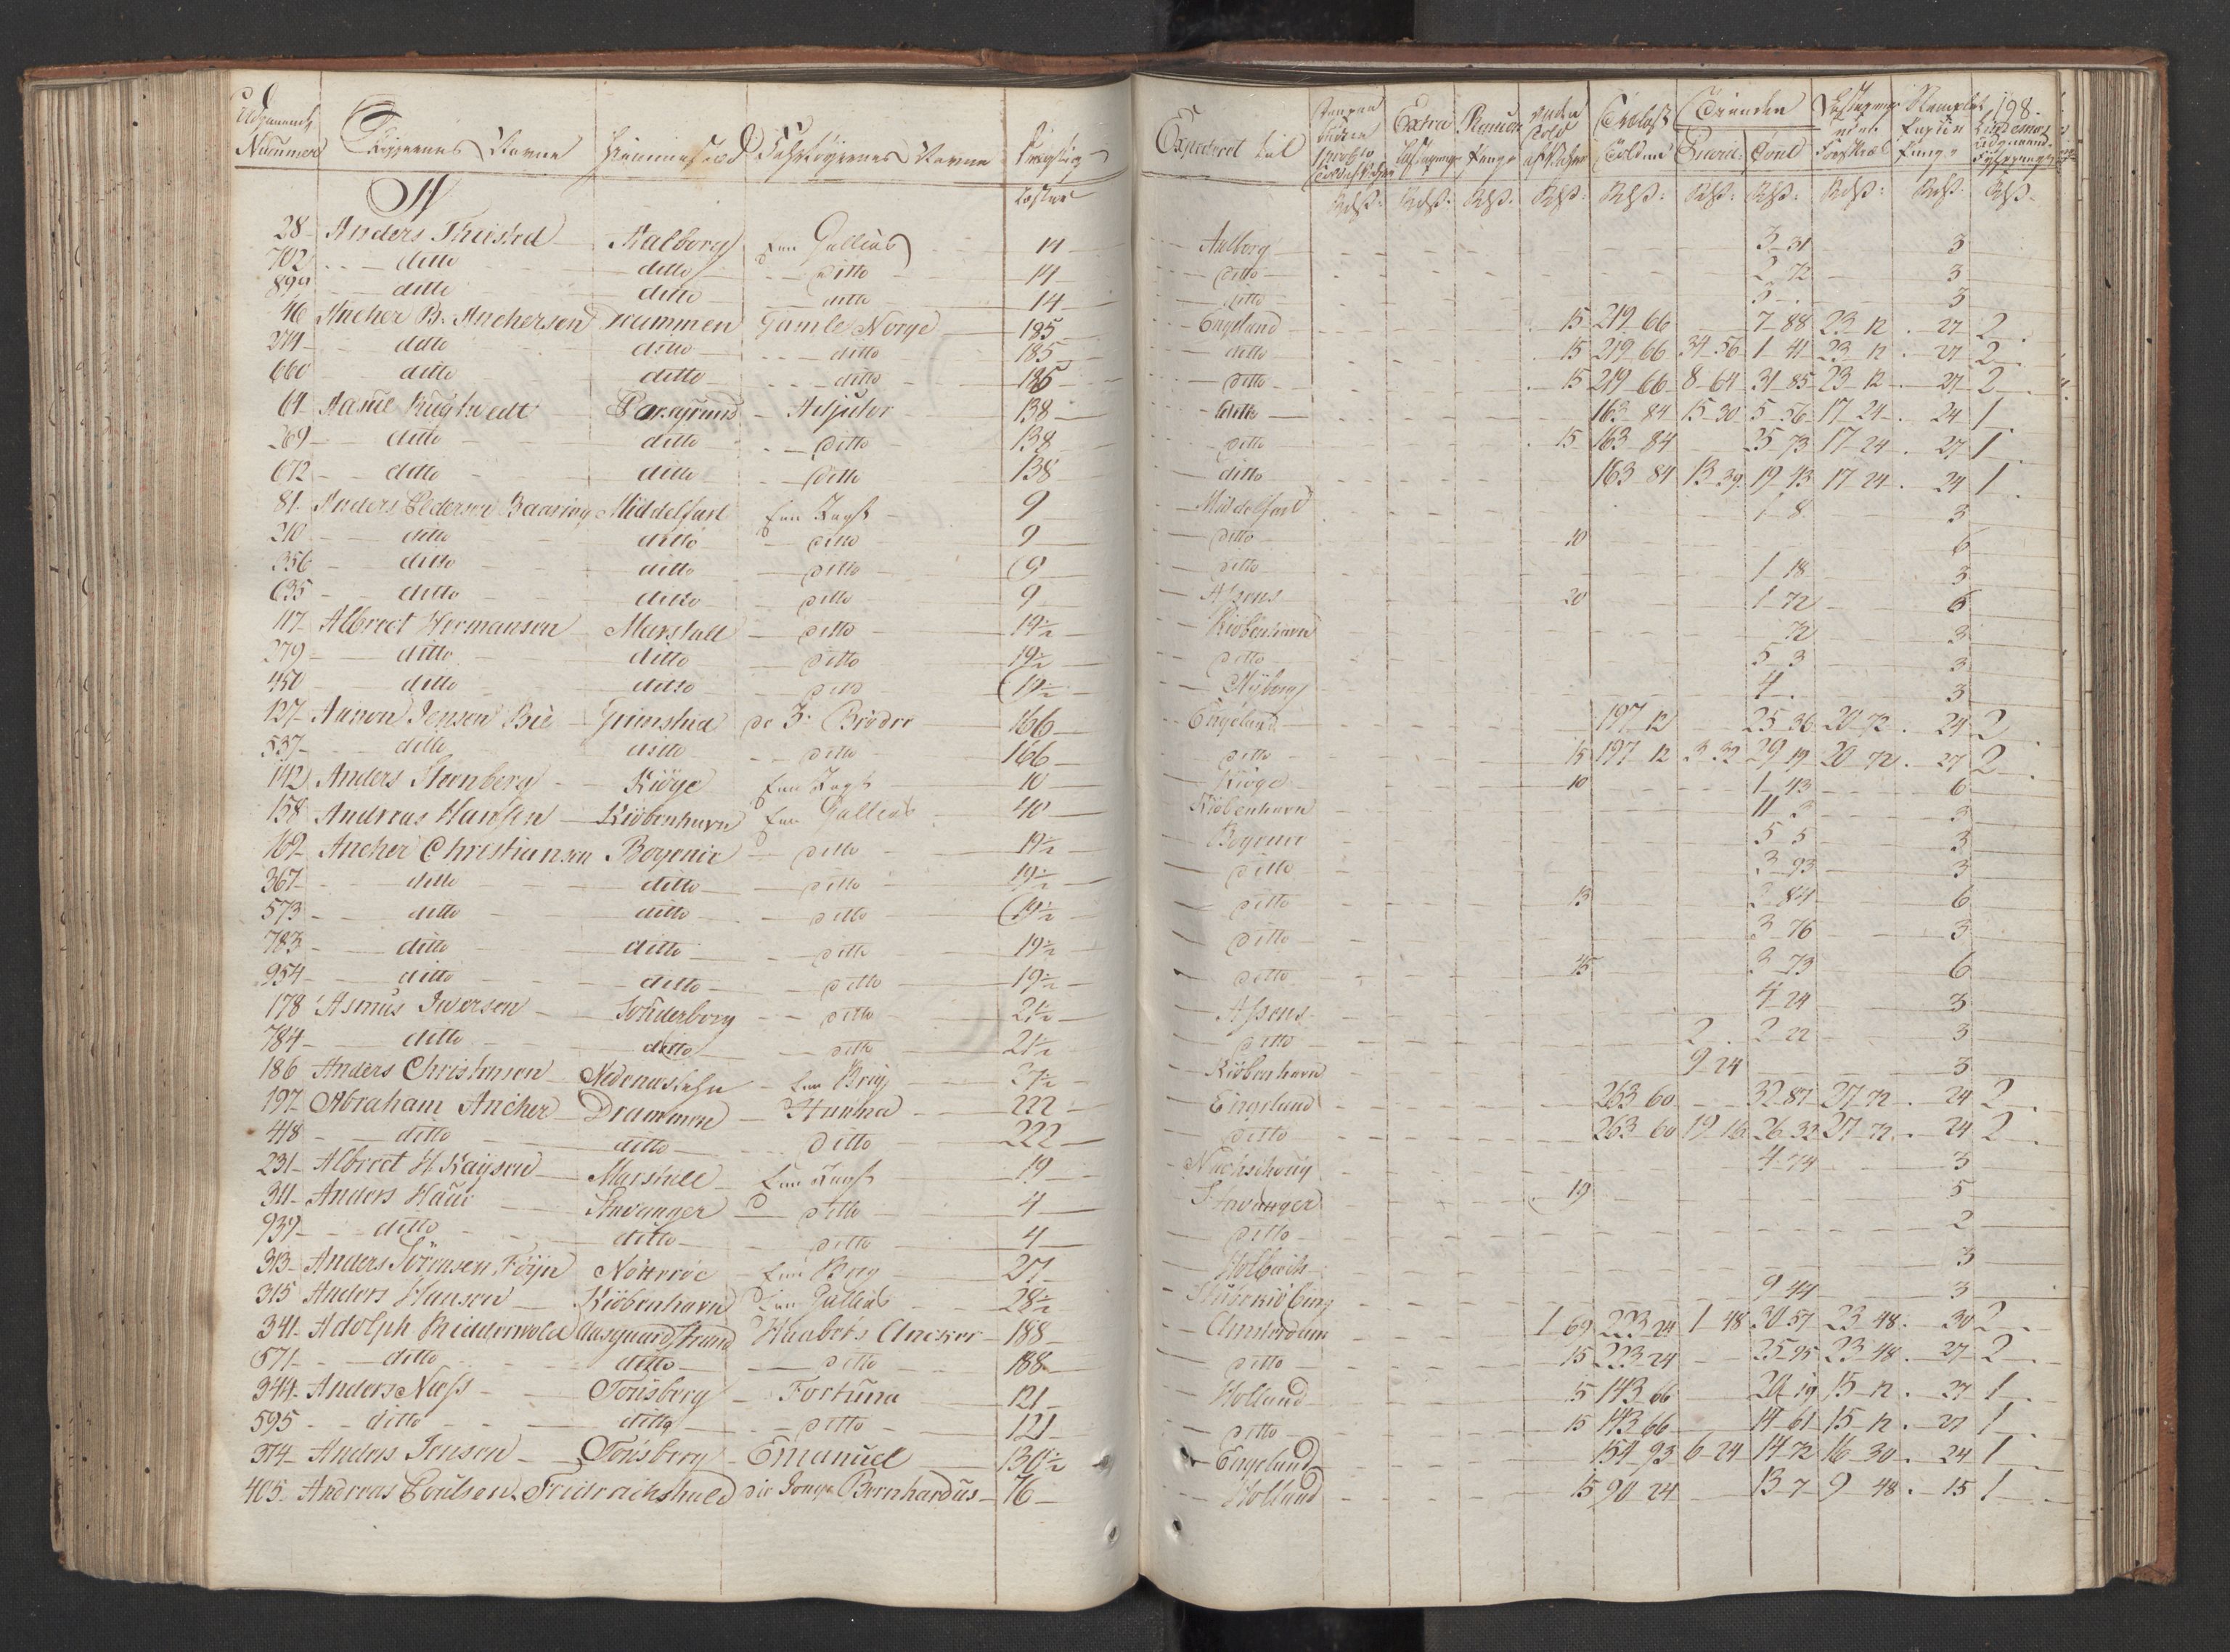 198.
Udgaaende Nummer | Skippernes Navne | Hiemmested | Fahrtøyernes Navne | Drægtig- Læster | Expederet til | Extra
A
28 Anders Thisted Aalborg Een Gallias 14 Aalborg 3 31 3
702 ditto ditto ditto 14 ditto 2 72 3
899 ditto ditto ditto 14 ditto 3 3
46 Ancher B. Anchersen Drammen Gamle Norge 185 Engeland 15 219 66 7 88 23 12 27 2
274 ditto ditto ditto 185 ditto 15 219 66 34 56 1 41 23 12 27 2
660 ditto ditto ditto 185 ditto 15 219 66 8 64 31 85 23 12 27 2
64 Porsgrund Adjutor 138 ditto 163 84 15 30 5 56 17 24 24 1
269 ditto ditto ditto 138 ditto 15 163 84 25 73 17 24 27 1
672 ditto ditto ditto 138 ditto 163 84 13 39 19 43 17 24 24 1
81 Anders Pedersen Baaring Middelfart Een Jagt 9 Middelfart 1 8 3
210 ditto ditto ditto 9 ditto 10 6
356 ditto ditto ditto 9 ditto 1 18 3
635 ditto ditto ditto 9 Assens 20 1 72 6
117 Albrect Hermansen Marstall ditto 19½ Kiöbenhavn 72 3
279 ditto ditto ditto 19½ ditto 5 3 3
450 ditto ditto ditto 19½ Nyborg 4 3
137 Aanon Jensen Bie Grimstad de 3 Brødre 166 Engeland 197 12 25 36 20 72 24 2
537 ditto ditto ditto 166 ditto 15 197 12 3 32 29 19 20 72 27 2
142 Anders Steenberg Kiöge Een Jagt 10 Kiöge 10 1 43 6
158 Andreas Hansen Kiöbenhavn Een Gallias 40 Kiöbenhavn 11 3 3
169 Ancher Christiansen Bogense ditto 19½ Bogense 5 5 3
367 ditto ditto ditto 19½ ditto 3 93 3
573 ditto ditto ditto 19½ ditto 13 3 84 6
783 ditto ditto ditto 19½ ditto 3 76 3
954 ditto ditto ditto 19½ ditto 15 3 73 6
178 Asmus Iwersen Sönderborg ditto 21½ Assens 4 24 3
784 ditto ditto ditto 21½ ditto 2 2 22 3
186 Anders Christensen Nedenæslehn Een Brig 37½ Kiöbenhavn 9 24 3
197 Abraham Ancher Drammen Hanna 222 Engeland 263 60 32 87 27 72 24 2
418 ditto ditto ditto 222 ditto 263 60 19 16 26 32 27 72 24 2
231 Albrect H. Kaysen Marstall Een Jagt 19 4 74 3
311 Anders Haue Stavanger ditto 4 Stavanger 19 5
939 ditto ditto ditto 4 ditto 2
313 Anders Sörensen Föyn Nötteröe Een Brig 27 Holbech 3
315 Anders Hansen Kiöbenhavn Een Gallias 28½ Rudkiöbing 9 44 3
341 Adolph Ridderwold Aasgaardstrand Haabets Ancker 188 Amsterdam 1 69 223 24 1 48 30 57 23 48 30 2
571 ditto ditto ditto 188 ditto 15 223 24 25 95 23 48 27 2
344 Anders Næss Tönsberg Fortuna 121 Holland 15 143 66 20 19 15 12 27 1
595 ditto ditto ditto 121 ditto 15 143 66 14 61 15 12 27 1
374 Anders Jensen Tönsberg Emanuel 130½ Engeland 154 93 6 24 14 72 16 30 24 1
405 Andreas Poulsen Fridrichshald die Jonge Bernhardus 76 Holland 15 90 24 13 7 9 48 15 1